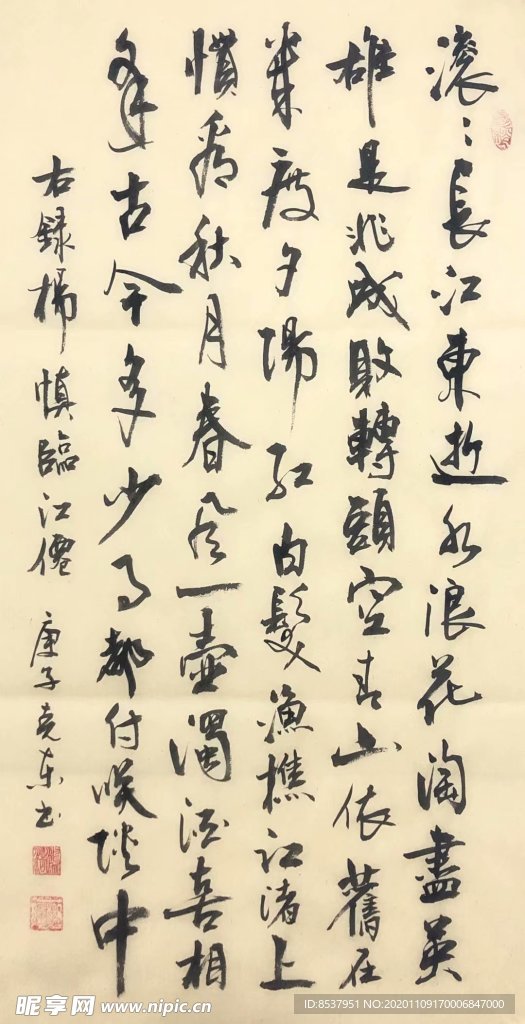 滚〻長江東逝水浪花淘盡英
雄是非成敗轉頭空青山依舊在
幾度夕陽紅白髮漁樵江渚上
慣看秋月春風一壺濁酒喜相
逢古今多少事都付咲談中
右録楊慎臨江僊 庚子东书
昵享网 www.nipic.cn
ID:8537951 NO:20201109170006847000